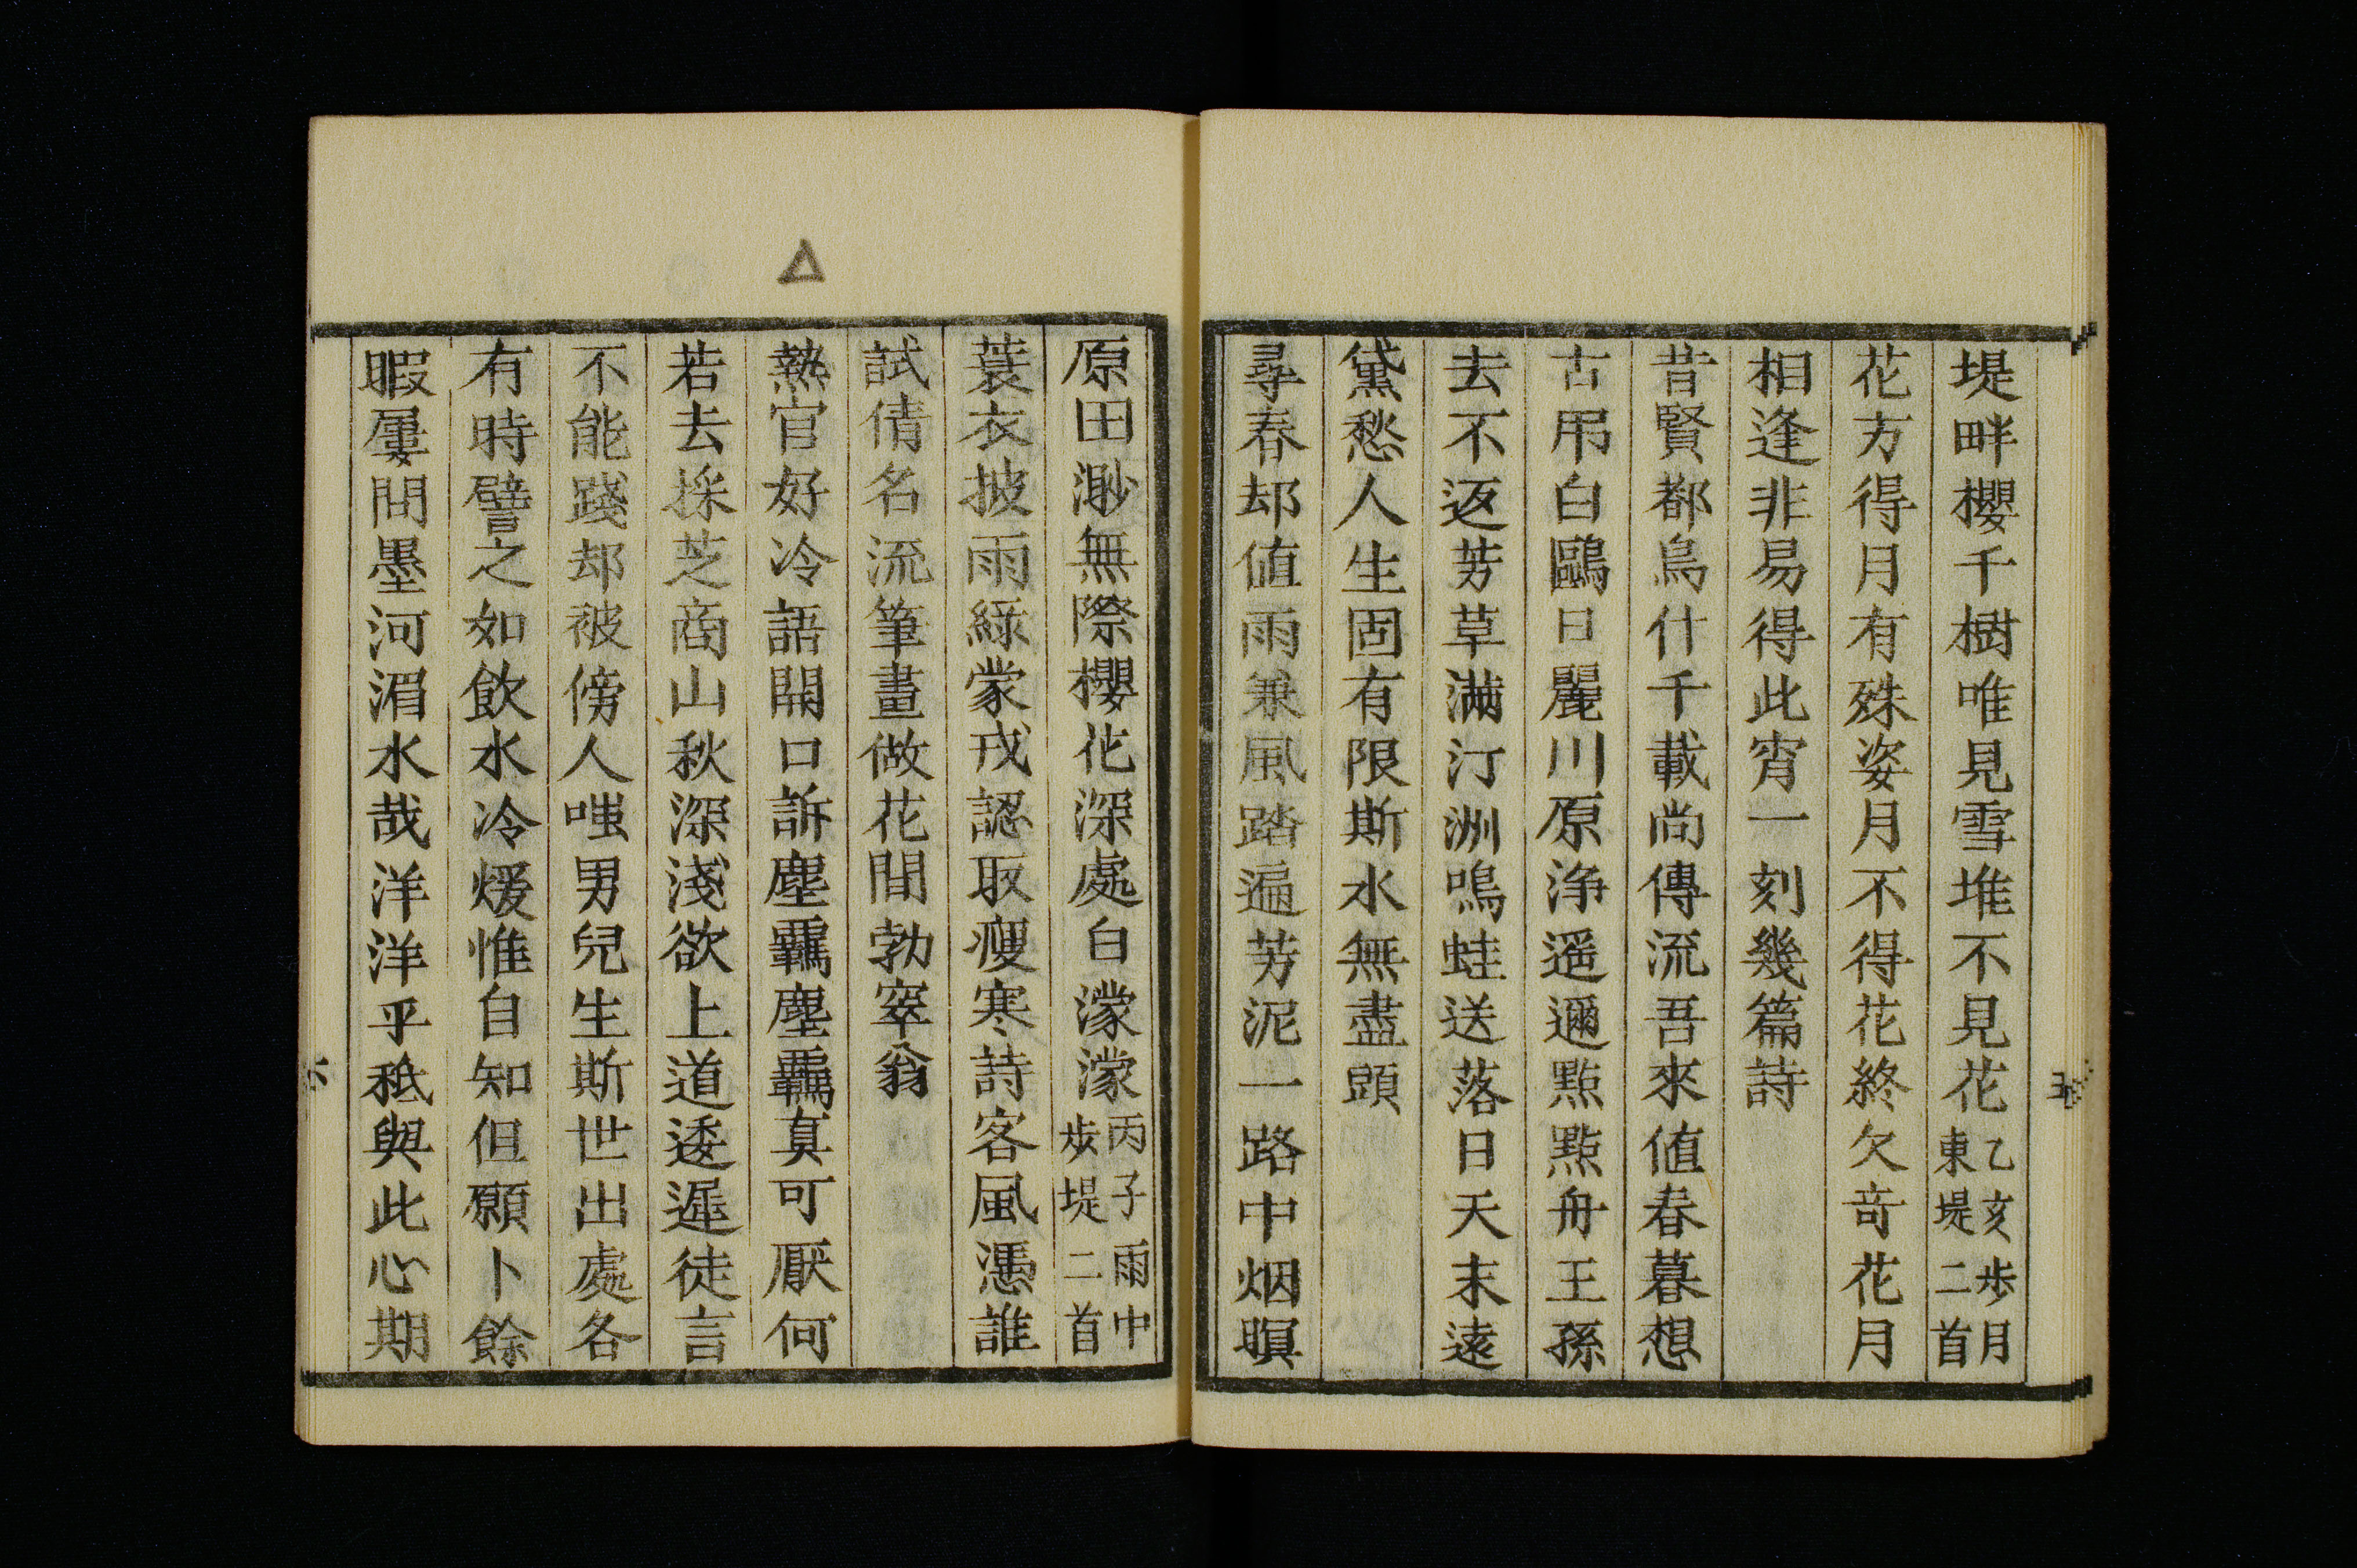 堤畔櫻千樹唯見雪堆不見花乙亥歩月東堤二首
花方得月有殊姿月不得花終欠奇花月
相逢非易得此宵一刻幾篇詩
昔賢都鳥什千載尚傳流吾來値春暮想
古弔白鷗日麗川原浄遥邇點點舟王孫
去不返芳草満汀洲鳴蛙送落日天末遠
黛愁人生固有限斯水無盡頭
尋春却値雨兼風踏遍芳泥一路中烟暝
原田渺無際櫻花深處白濛濛丙子雨中歩堤二首
蓑衣披雨綠蒙戎認取痩寒詩客風憑誰
試倩名流筆畫做花間勃窣翁
熱官好冷語開口訴塵羈塵羈真可厭何
若去採芝商山秋深淺欲上道逶遲徒言
不能踐却被傍人嗤男兒生斯世出處各
有時譬之如飲水冷煖惟自知但願卜餘
暇屢問墨河湄水哉洋洋乎秖與此心期
六